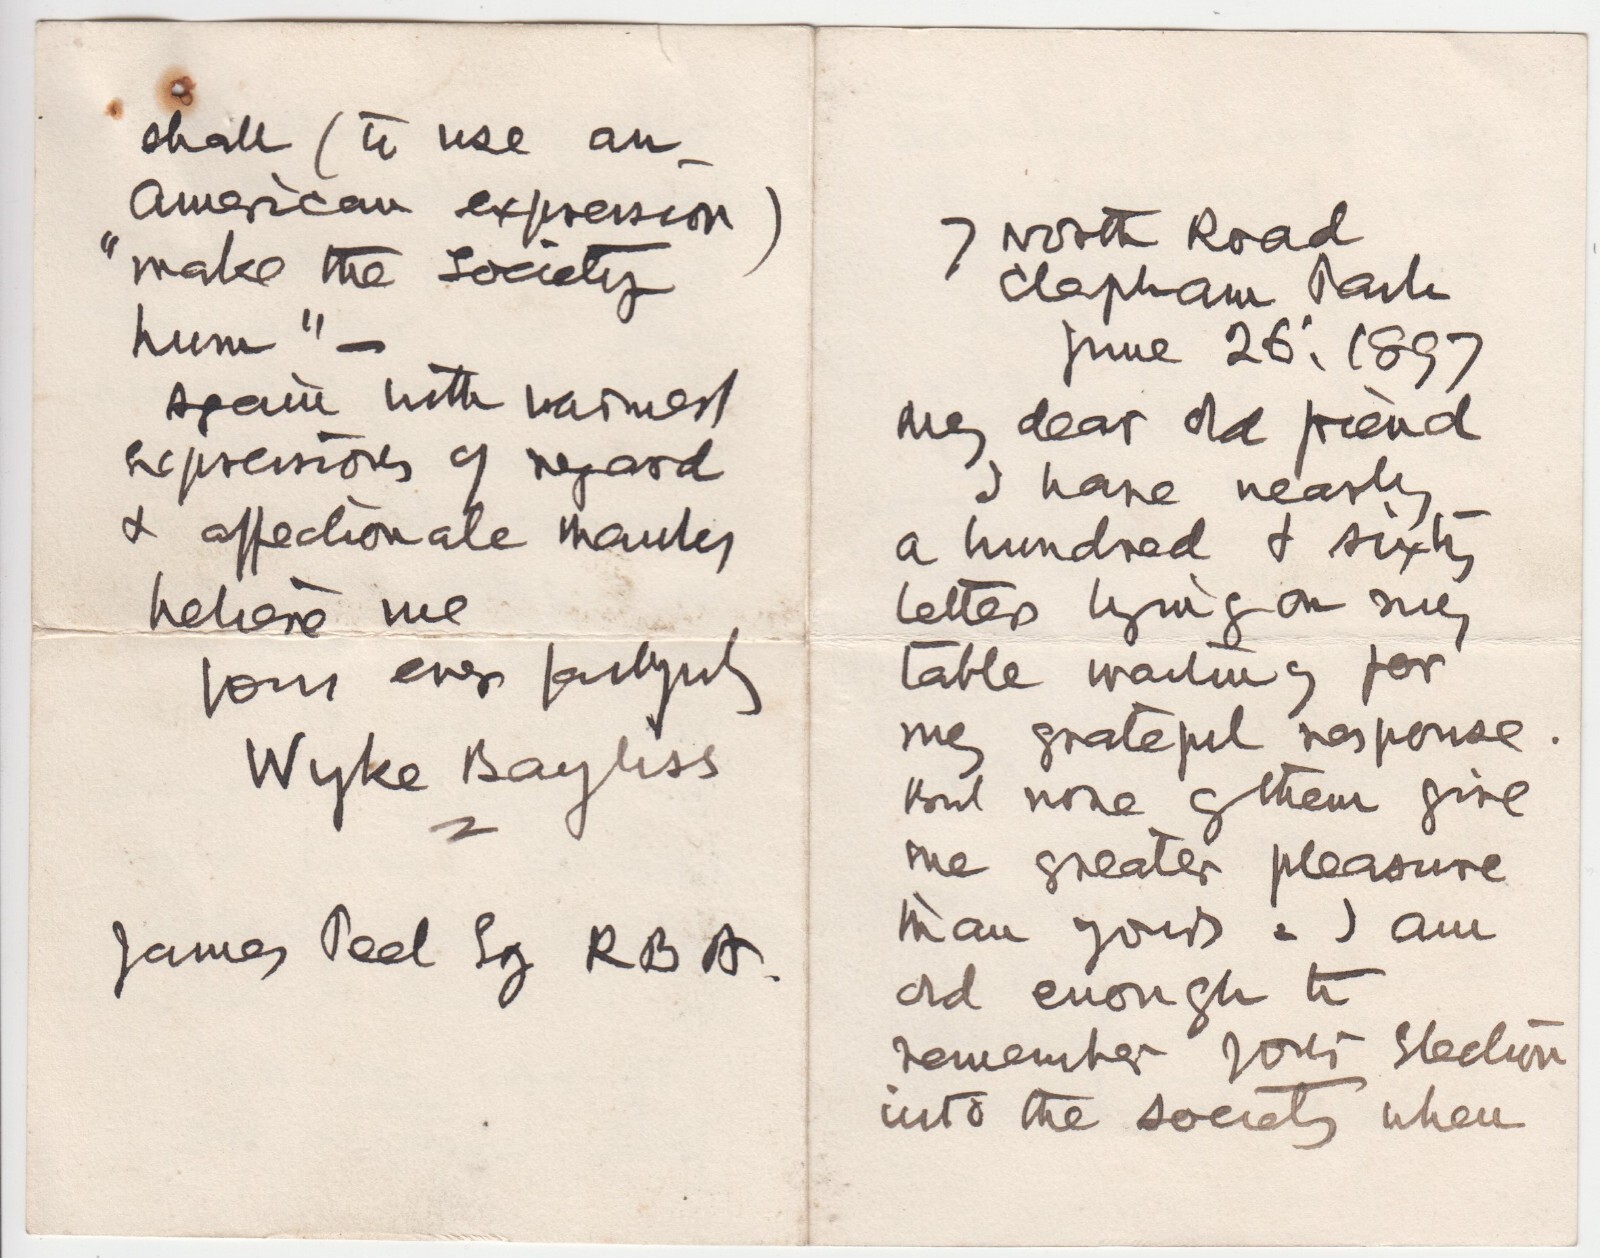 7 North Road
Clapham Park
June 26. 1897
My dear old friend
I have nearly
a hundred & sixty
letters lying on my
table waiting for
my grateful response.
But none of them give
me greater pleasure
than yours. I am
old enough to
remember your Election
into the Society when
shall (to use an
American expression)
"make the Society
hum" —
Again with warmest
expressions of regard
& affectionate thanks
believe me
yours ever faithfully
Wyke Bayliss
James Peel Esq R B A.